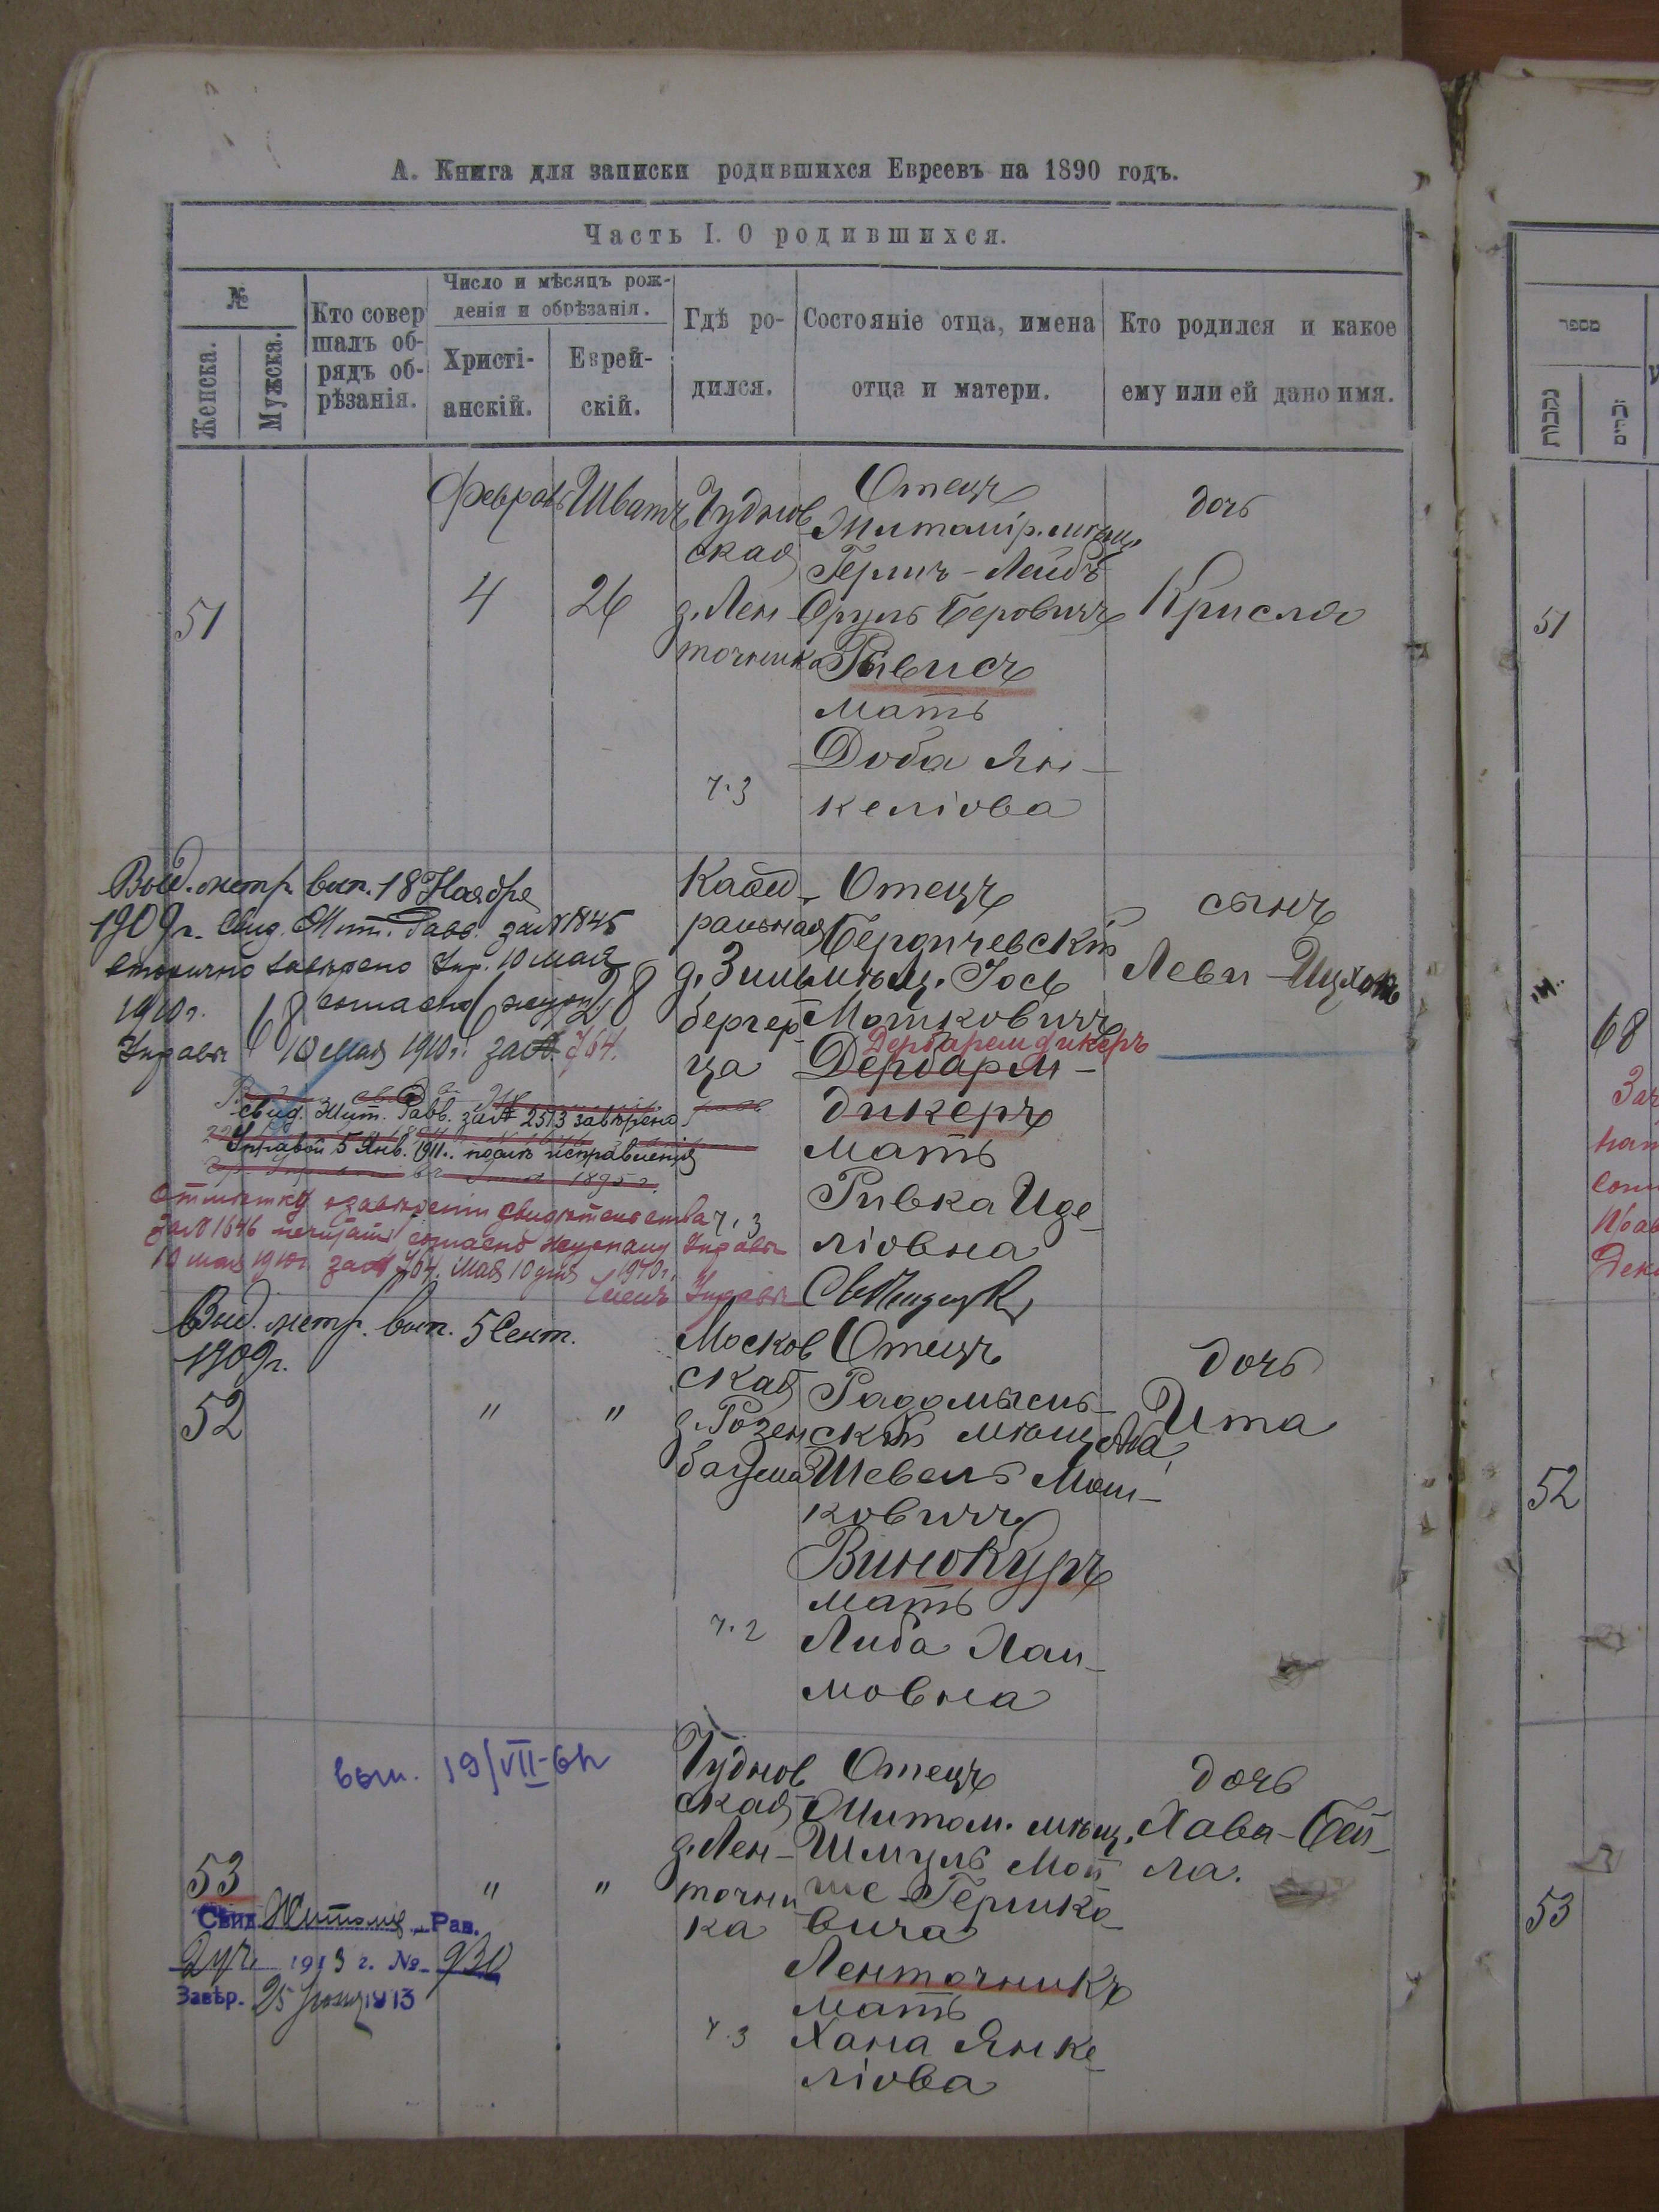 А. Книга для записки родившихся Евреевъ на 1890 годъ.
Часть I. О родившихся.
№
Женска.
Мужска.
Кто совер
шалъ об-
рядъ об-
рѣзанія.
Число и мѣсяцъ рож-
денія и обрѣзанія.
Христі-
анскій.
Еврей-
скій.
Гдѣ ро-
дился.
Состояніе отца, имена
отца и матери.
Кто родился и какое
ему или ей дано имя.
51
4
26
Чуднов
ская
д. Лен
точника
ч. 3
Отецъ
Житомір. мѣщ.
Гершъ-Лейбъ
Сруль Беровичъ
мать
Доба Ян-
келіова
дочь
Крисля
Выд. метр. вып. 18 Ноября
1909 г. Свид. Жит. Равв. за №
вторично завѣрено Упр. 10 мая
1910 г. согласно
Управы 10 мая 1910 г. за № 764.
68
28
свид. Жит. Равв. за № 2513 завѣрено
Управой 5 Янв. 1911 г. послѣ исправленія
1895 г.
Отмѣтку о завѣреніи свидѣтельства
за № 1646 согласно журналу Управы
10 мая 1910 г. за № 764. Мая 10 дня 1910 г.
Членъ Управы
Кафед-
ральная
д. Зиль
бергер-
ца
ч. 3
Отецъ
Бердичевскій
мѣщ. Іось
Мошковичъ
Дербаремдикеръ
Дербарм-
дикеръ
мать
Ривка Иде-
ліовна
сынъ
Леви-Ицхокъ
Выд. метр. вып. 5 Сент.
1909 г.
52
"
"
Москов
ская
д. Розен
баума
ч. 2
Отецъ
Радомысль-
скій мѣщ.
Шевель Мош-
ковичъ
Винокуръ
мать
Либа Хаи-
мовна
дочь
Ита
вып. 19/VII-
53
"
"
Свид. Равв.
1913 г. № 930
Завѣр. 25 1913
Чуднов
ская
д. Лен-
точни
ка
ч. 3
Отецъ
Житом. мѣщ.
Шмуль Мой
ше-Гершко-
вича
Ленточникъ
мать
Хана Янке-
ліова
дочь
Хава-Бей-
ла.
מספר
נקבות
זכרים
51
68
52
53